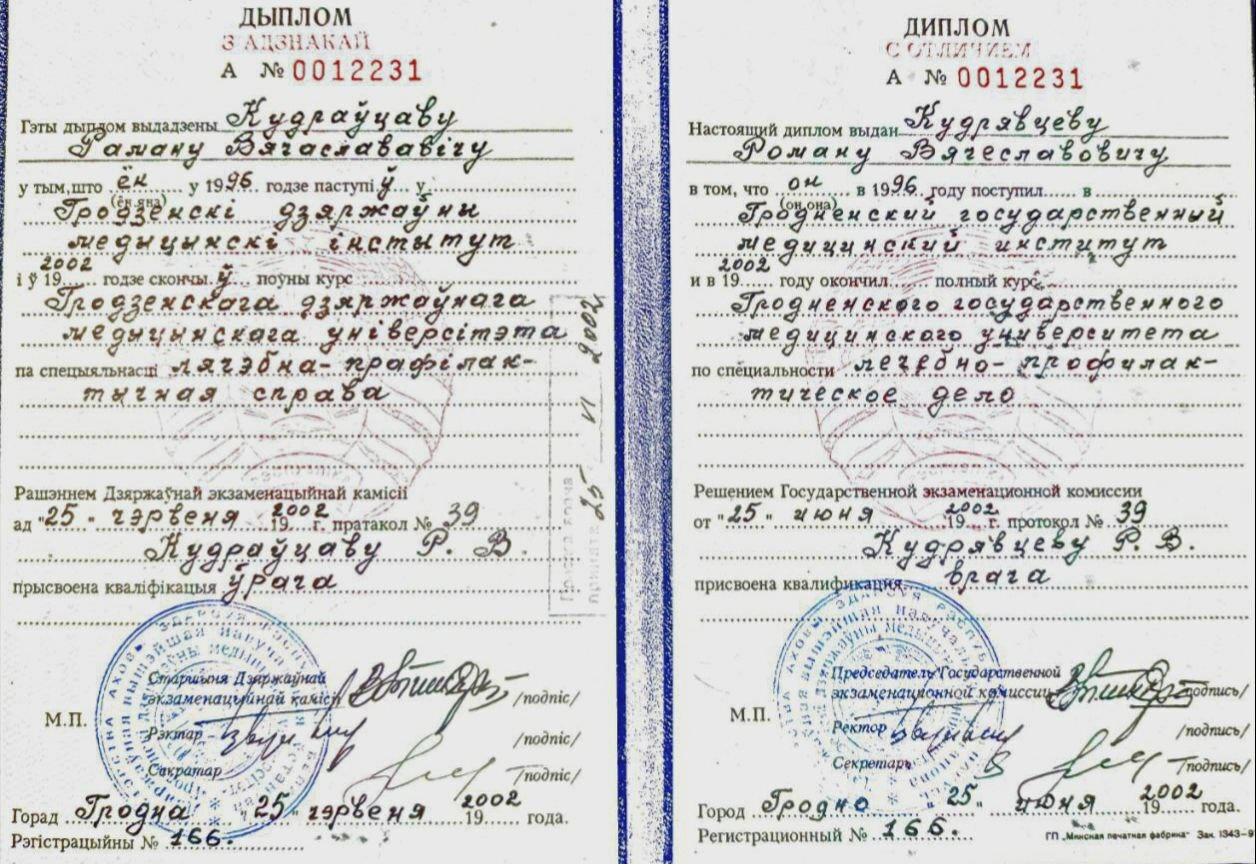 ДЫПЛОМ
З АДЗНАКАЙ
А № 0012231
Гэты дыплом выдадзены Кудраўцаву
Раману Вячаслававічу
у тым, што ён у 1996 годзе паступіў у
(ён, яна)
Гродзенскі дзяржаўны
медыцынскі інстытут
2002
і ў 19 годзе скончыў поўны курс
Гродзенскага дзяржаўнага
медыцынскага універсітэта
па спецыяльнасці лячэбна-прафілак-
тычная справа
Рашэннем Дзяржаўнай экзаменацыйнай камісіі
ад "25" чэрвеня 2002 19 г. пратакол № 39
Кудраўцаву Р. В.
прысвоена кваліфікацыя ўрача
Старшыня Дзяржаўнай
экзаменацыйнай камісіі /подпіс/
М.П.
Рэктар /подпіс/
Сакратар /подпіс/
Горад Гродна "25" чэрвеня 2002 19 года.
Рэгістрацыйны № 166.
25 VI 2002
ДИПЛОМ
С ОТЛИЧИЕМ
А № 0012231
Настоящий диплом выдан Кудрявцеву
Роману Вячеславовичу
в том, что он в 1996 году поступил в
(он, она)
Гродненский государственный
медицинский институт
2002
и в 19 году окончил полный курс
Гродненского государственного
медицинского университета
по специальности лечебно-профилак-
тическое дело
Решением Государственной экзаменационной комиссии
от "25" июня 2002 19 г. протокол № 39
Кудрявцеву Р. В.
присвоена квалификация врача
Председатель Государственной
экзаменационной комиссии /подпись/
М.П.
Ректор /подпись/
Секретарь /подпись/
Город Гродно "25" июня 2002 19 года.
Регистрационный № 166.
ГП „Минская печатная фабрика" Зак. 1343-9